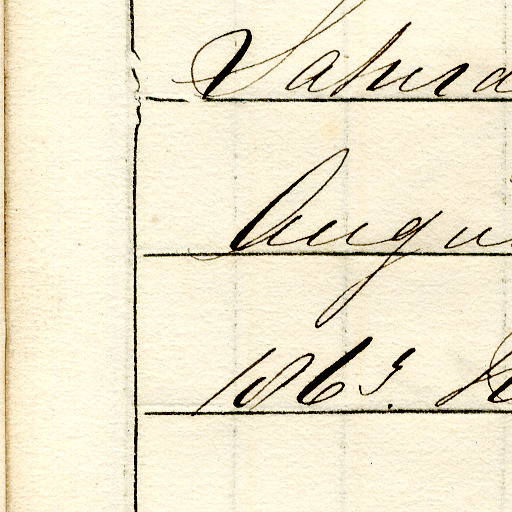 Saturda
Augu
1865.